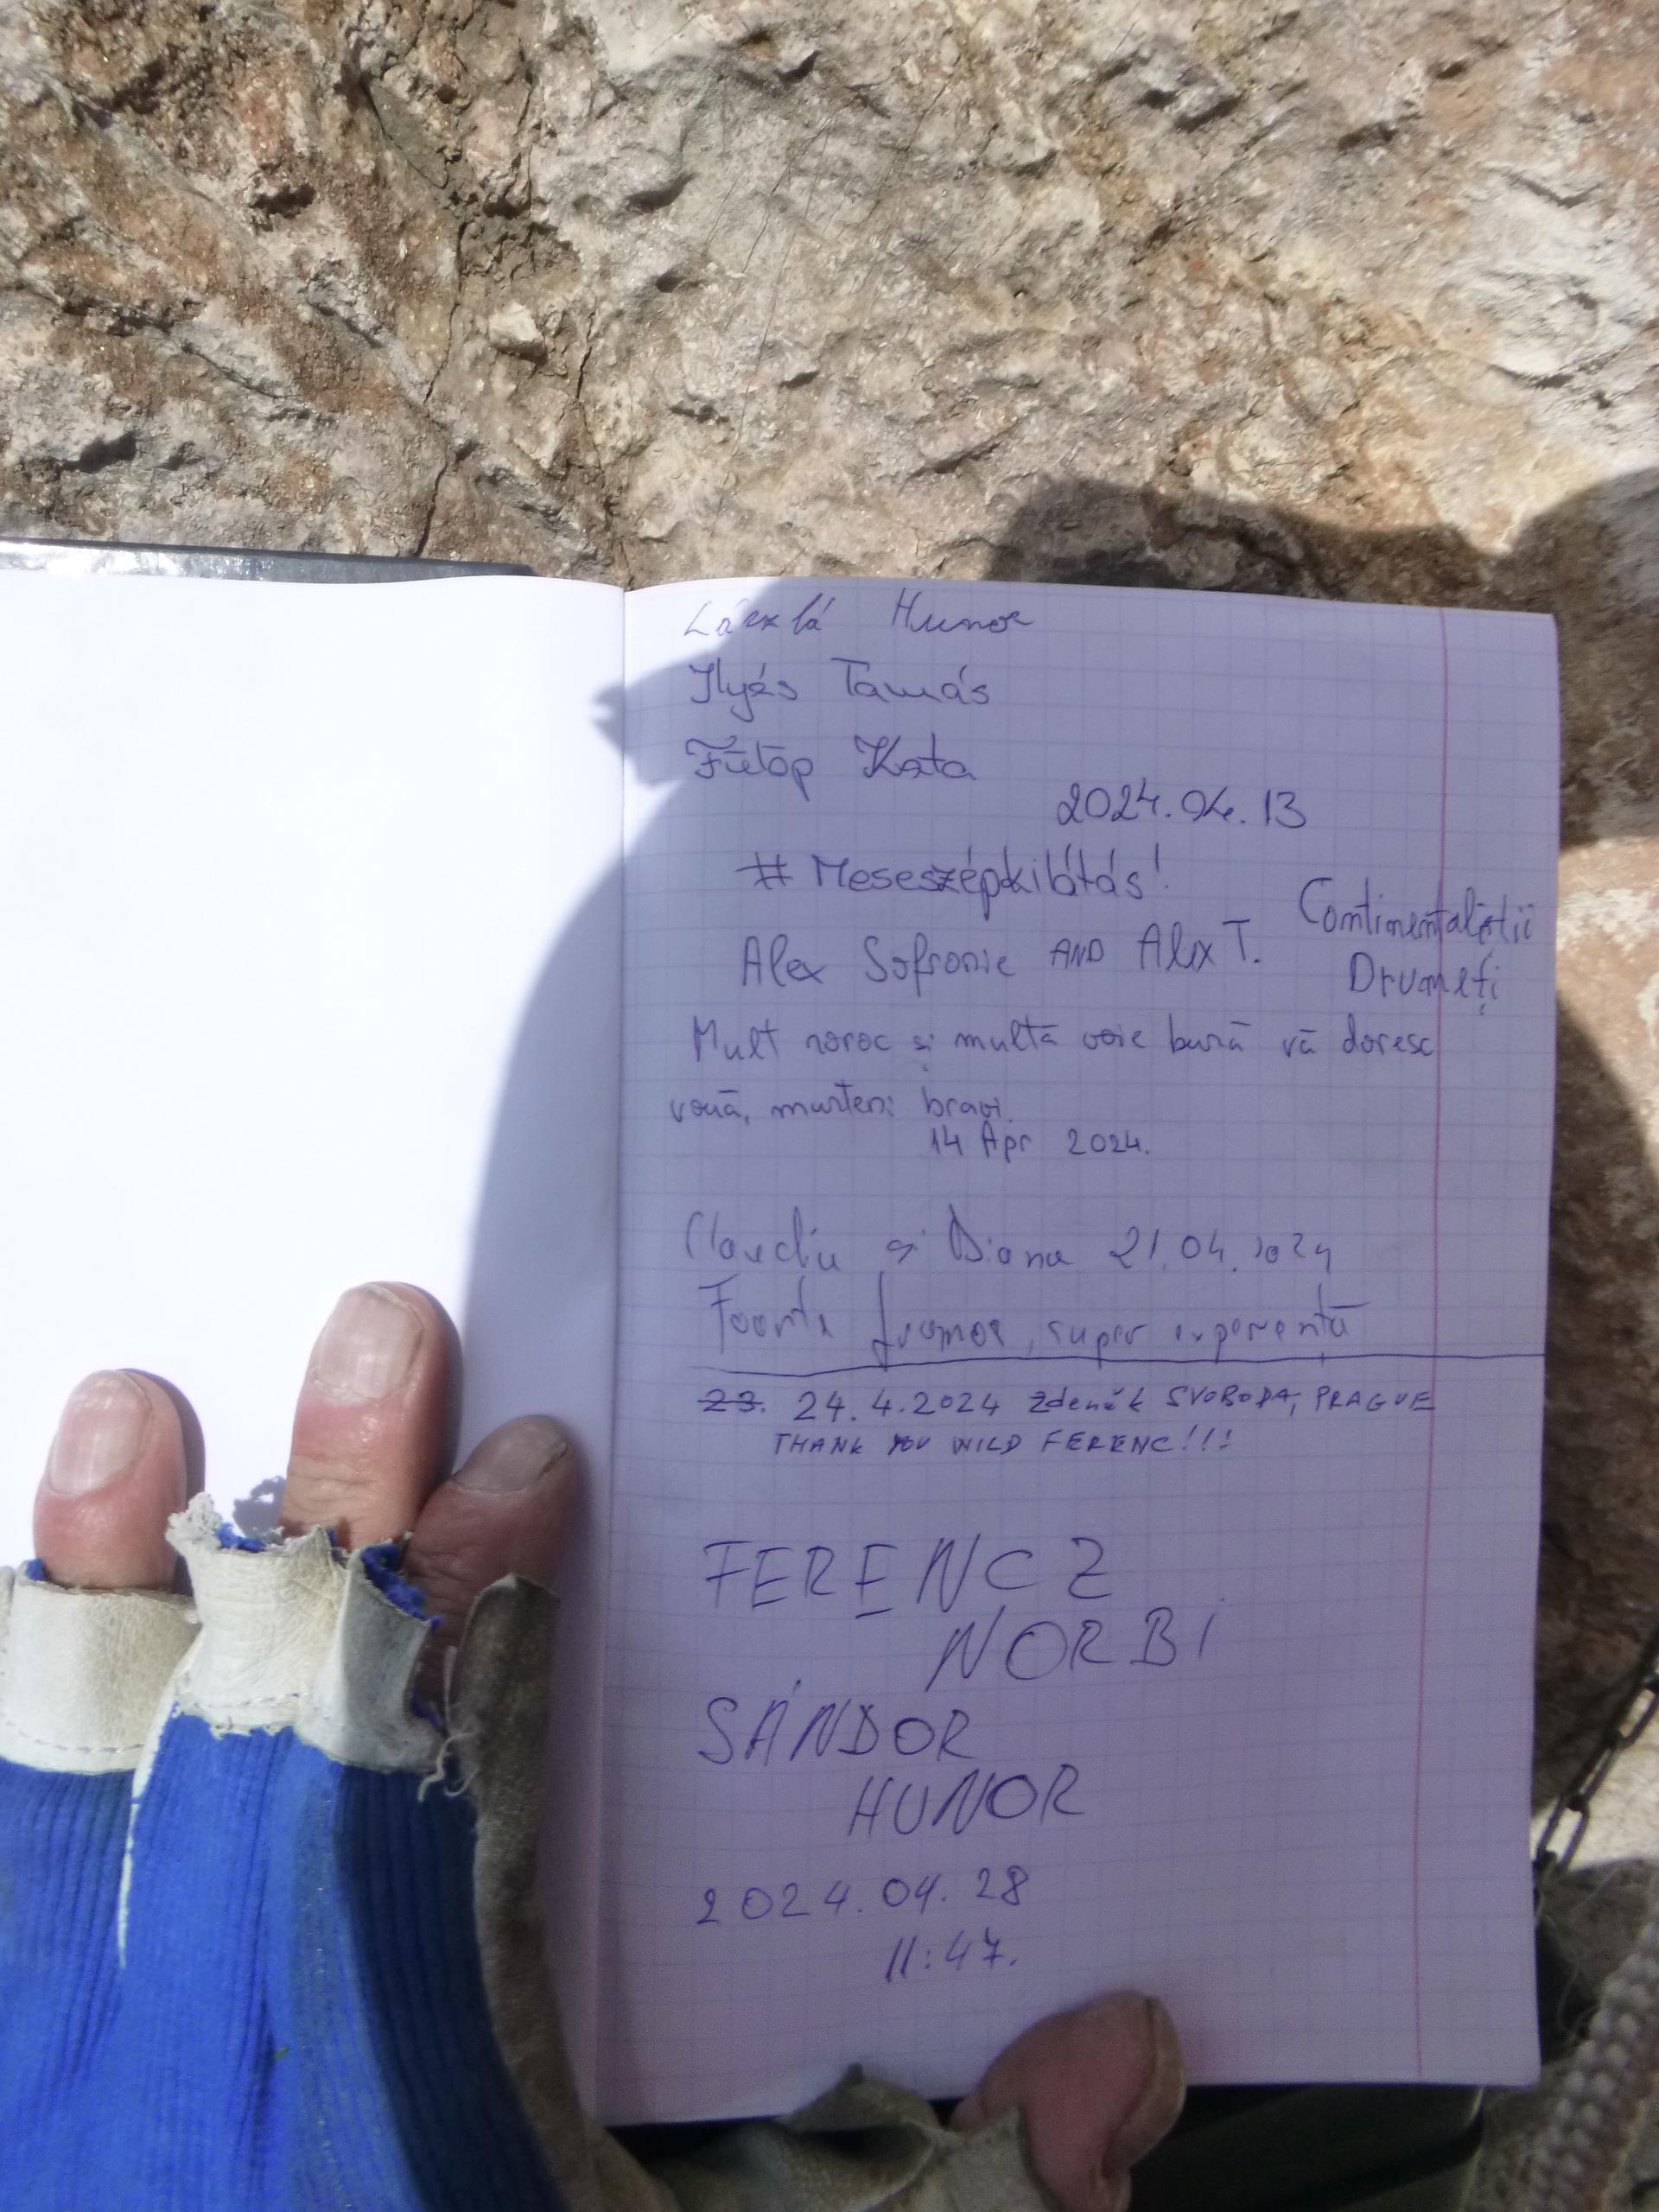 László Hunor
Ilyés Tamás
Fülöp Kata
2024.04.13
# Meseszépkilátás!
Alex Sofronie AND Alex T.
Continentaliștii
Drumeți
Mult noroc și multă voie bună vă doresc
vouă, munteni bravi.
14 Apr 2024.
Claudiu și Diana 21.04.2024
Foarte frumos, super experientă
23. 24.4.2024 Zdeněk SVOBODA, PRAGUE
THANK YOU WILD FERENC!!!
FERENCZ
NORBI
SÁNDOR
HUNOR
2024.04.28
11:47.